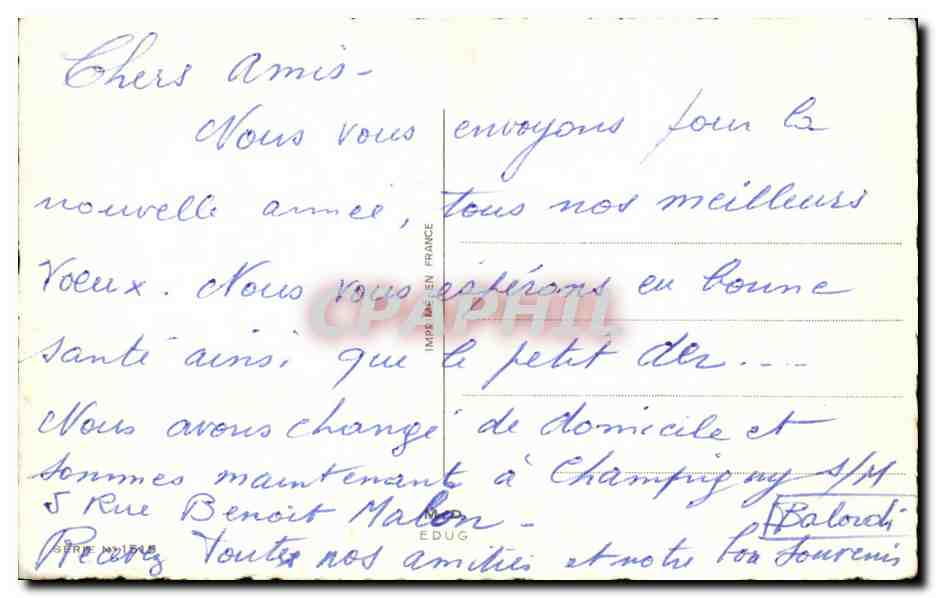 Chers amis -
Nous vous envoyons pour la
nouvelle année, tous nos meilleurs
Vœux. Nous vous espérons en bonne
santé ainsi que le petit der ....
Nous avons changé de domicile et
sommes maintenant à Champigny s/M
5 Rue Benoit Malon -
Balordi
Recevez toutes nos amitiés et notre bon souvenir
IMPRIMÉ EN FRANCE
CPAPHIL
M.D.
EDUG
SÉRIE No 1515